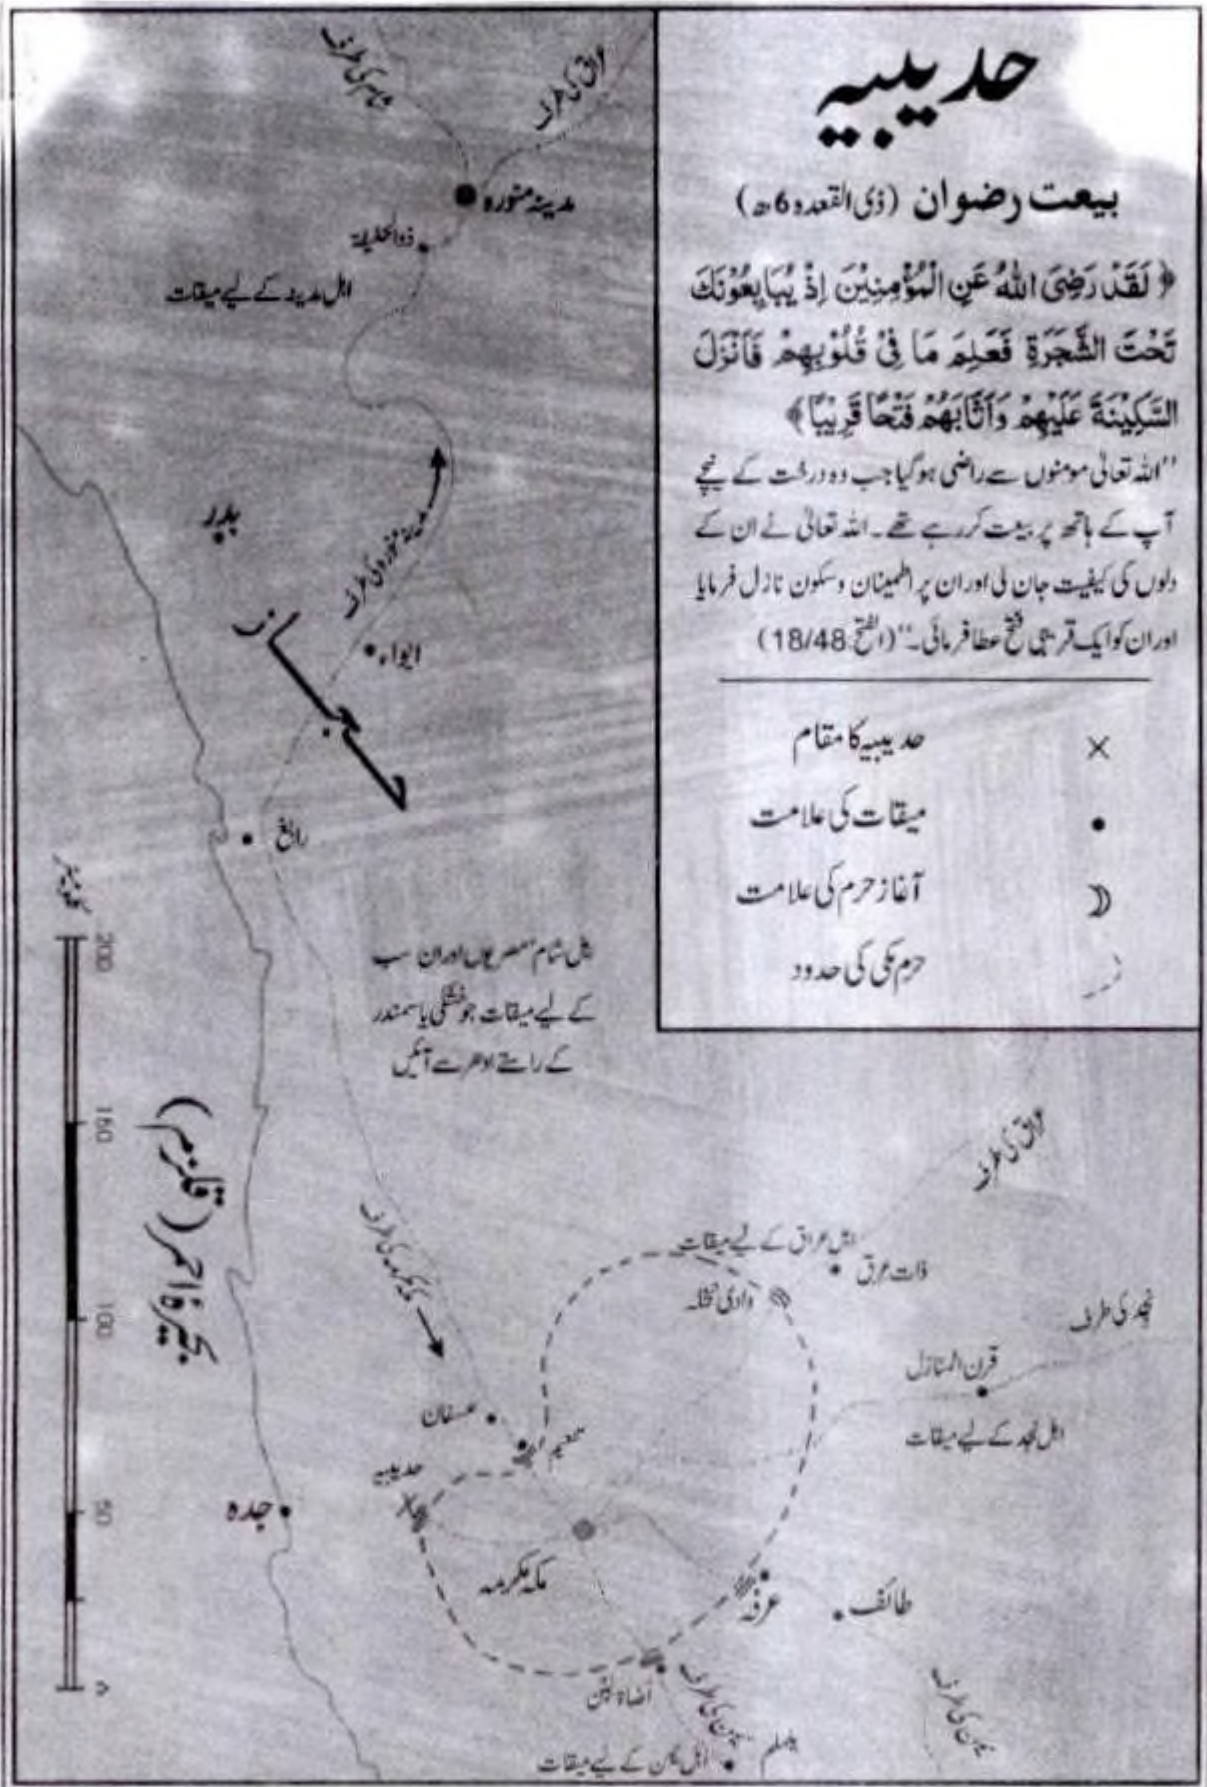 حدیبیہ
بیعت رضوان (ذی القعدہ 6ھ)
﴿ لَقَدْ رَضِیَ اللّٰهُ عَنِ الْمُؤْمِنِیْنَ اِذْ یُبَایِعُوْنَكَ
تَحْتَ الشَّجَرَةِ فَعَلِمَ مَا فِیْ قُلُوْبِهِمْ فَاَنْزَلَ
السَّكِیْنَةَ عَلَیْهِمْ وَاَثَابَهُمْ فَتْحًا قَرِیْبًا﴾
’’اللہ تعالیٰ مومنوں سے راضی ہوگیا جب وہ درخت کے نیچے
آپ کے ہاتھ پر بیعت کررہے تھے۔ اللہ تعالیٰ نے ان کے
دلوں کی کیفیت جان لی اور ان پر اطمینان و سکون نازل فرمایا
اور ان کو ایک قریبی فتح عطا فرمائی۔‘‘ (الفتح: 18/48)
حدیبیہ کا مقام
میقات کی علامت
آغاز حرم کی علامت
حرم مکی کی حدود
شام کی طرف
عراق کی طرف
مدینہ منورہ
ذوالحلیفہ
اہل مدینہ کے لیے میقات
بدر
مدینہ منورہ کی طرف
حجاز
ابواء
رابغ
کلومیٹر
200
150
100
50
اہل شام مصریوں اور ان سب
کے لیے میقات جو خشکی یا سمندر
کے راستے ادھر سے آئیں
بحیرۂ احمر (قلزم)
مکہ مکرمہ کی طرف
عراق کی طرف
اہل عراق کے لیے میقات
ذات عرق
وادی نخلہ
نجد کی طرف
قرن المنازل
اہل نجد کے لیے میقات
عسفان
تنعیم
حدیبیہ
جدہ
مکہ مکرمہ
عرفہ
طائف
اضاۃ لبن
یمن کی طرف
یمن کی طرف
یلملم
اہل یمن کے لیے میقات